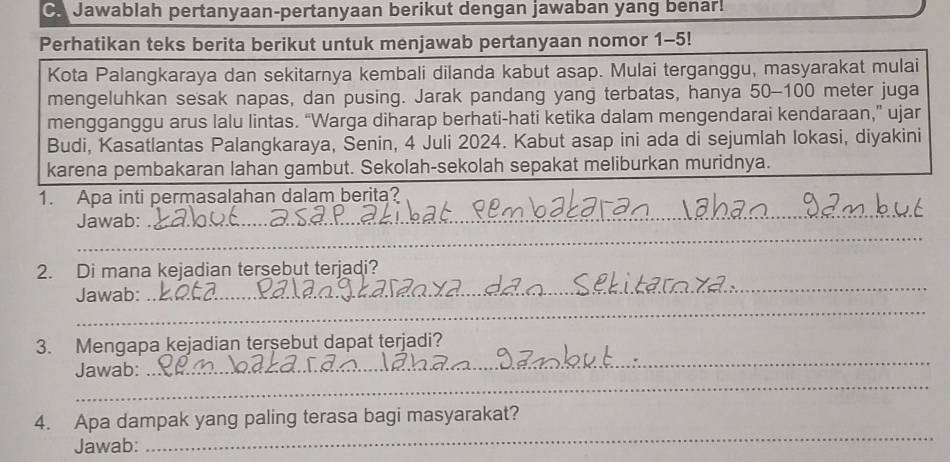 C. Jawablah pertanyaan-pertanyaan berikut dengan jawaban yang benar!
Perhatikan teks berita berikut untuk menjawab pertanyaan nomor 1–5!
Kota Palangkaraya dan sekitarnya kembali dilanda kabut asap. Mulai terganggu, masyarakat mulai
mengeluhkan sesak napas, dan pusing. Jarak pandang yang terbatas, hanya 50–100 meter juga
mengganggu arus lalu lintas. “Warga diharap berhati-hati ketika dalam mengendarai kendaraan,” ujar
Budi, Kasatlantas Palangkaraya, Senin, 4 Juli 2024. Kabut asap ini ada di sejumlah lokasi, diyakini
karena pembakaran lahan gambut. Sekolah-sekolah sepakat meliburkan muridnya.
1. Apa inti permasalahan dalam berita?
Jawab: kabut asap akibat pembakaran lahan gambut
2. Di mana kejadian tersebut terjadi?
Jawab: kota palangkaranya dan sekitarnya.
3. Mengapa kejadian tersebut dapat terjadi?
Jawab: pembakaran lahan gambut.
4. Apa dampak yang paling terasa bagi masyarakat?
Jawab: